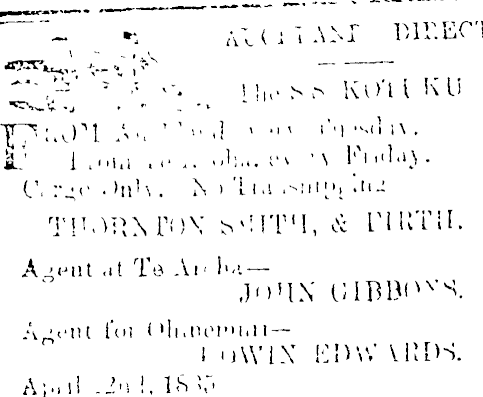 AUCKLAND DIRECT
The S.S. KOTUKU
FROM Auckland every Tuesday.
From Te Aroha, every Friday.
Cargo Only. No Transhipping
THORNTON SMITH, & FIRTH.
Agent at Te Aroha—
JOHN GIBBONS.
Agent for Ohinemuri—
EDWIN EDWARDS.
April 2nd, 1885